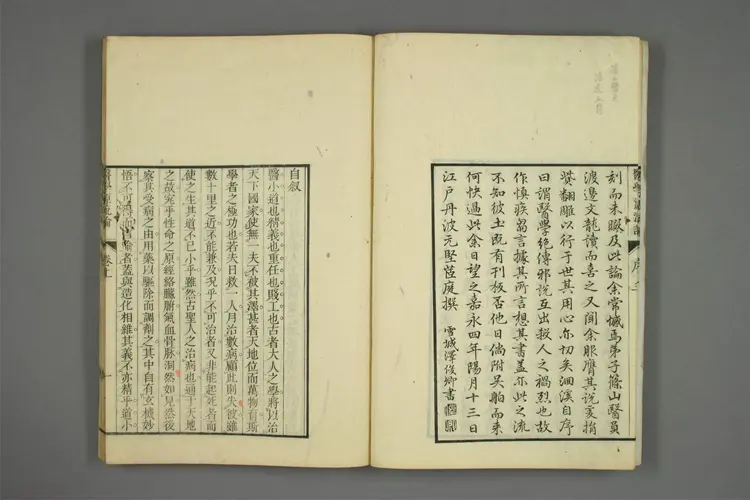 刻而未及此論余常憾焉弟子篠山醫員
渡邊文龍讀而喜之又聞余服膺其説爰捐
貲翻雕以行于世其用心亦切矣洄溪自序
曰謂醫學絶傳邪説互出殺人之禍烈也故
作慎疾芻言據其所言想其書蓋亦此之流
不知彼土既有刊板否他日倘附吴舶而来
何快過此余日望之嘉永四年陽月十三日
江戸丹波元堅茝庭撰 雪城澤俊卿書
自叙
醫小道也精義也重任也賤工也古者大人之學將以治
天下國家使無一夫不被其澤甚者天地位而萬物育斯
學者之極功也若夫日救一人月治數病顧此則失彼雖
數十里之近不能兼及況乎不可治者又非能起死者而
使之生其道不已小乎雖然古聖人之治病也通于天地
之故究乎性命之原經絡臟腑氣血骨脉洞然如見然後
察其受病之由用藥以驅除而調劑之其中自有玄機妙
悟不可得而言喻者蓋與造化相維其義不亦精乎道小
醫學源流論 卷上 一